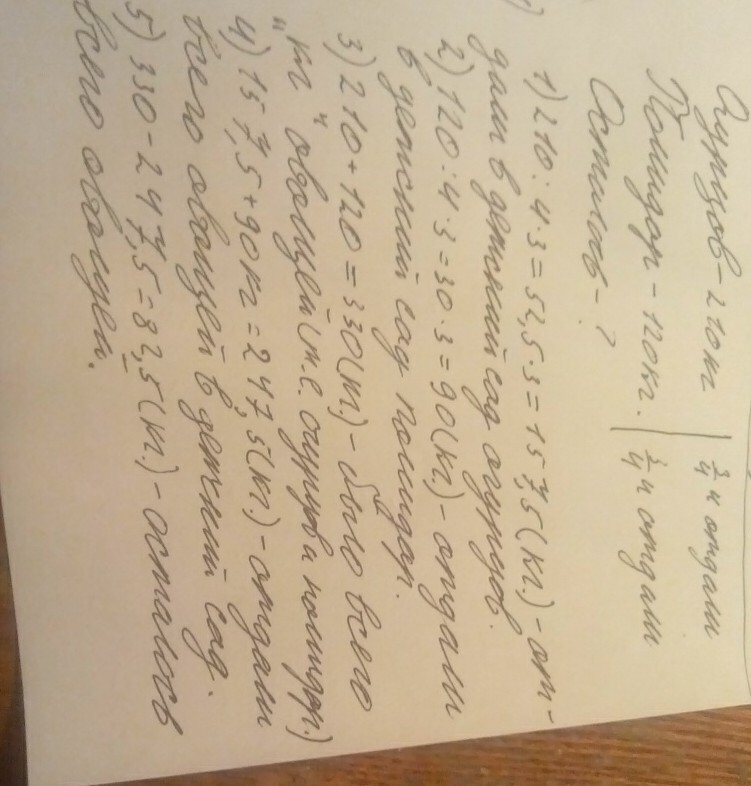 Огурцов - 210 кг | 3/4 ч отдали
Помидор - 120 кг. | 3/4 ч отдали
Осталось - ?
1) 210 : 4 · 3 = 52,5 · 3 = 157,5 (кг.) - от-
дали в детский сад огурцов.
2) 120 : 4 · 3 = 30 · 3 = 90 (кг.) - отдали
в детский сад помидор.
3) 210 + 120 = 330 (кг.) - было всего
"кг" овощей (т.е. огурцов и помидор.)
4) 157,5 + 90 кг = 247,5 (кг.) - отдали
всего овощей в детский сад.
5) 330 - 247,5 = 82,5 (кг.) - осталось
всего овощей.